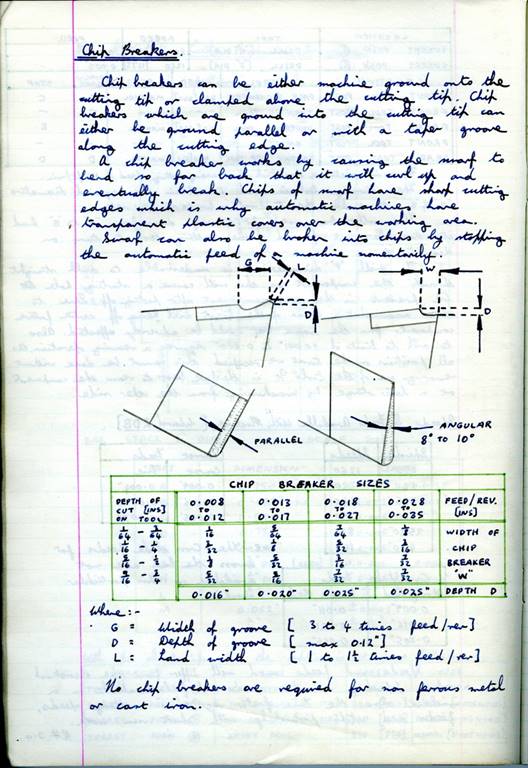 Chip Breakers.
Chip breakers can be either machine ground onto the
cutting tip or clamped above the cutting tip. Chip
breakers which are ground into the cutting tip can
either be ground parallel or with a taper groove
along the cutting edge.
A chip breaker works by causing the swarf to
bend so far back that it will curl up and
eventually break. Chips of swarf have sharp cutting
edges which is why automatic machines have
transparent plastic covers over the working area.
Swarf can also be broken into chips by stopping
the automatic feed of machine momentarily.
G L D
W D
PARALLEL
ANGULAR
8° TO 10°
CHIP BREAKER SIZES
DEPTH OF CUT [INS] ON TOOL
0.008 TO 0.012
0.013 TO 0.017
0.018 TO 0.027
0.028 TO 0.035
FEED/REV. [INS]
WIDTH OF CHIP BREAKER "W"
0.016" 0.020" 0.025" 0.025" DEPTH D
Where:-
G = Width of groove [ 3 to 4 times feed/rev]
D = Depth of groove [ max 0.12"]
L = Land width [ 1 to 1½ times feed/rev]
No chip breakers are required for non ferrous metal
or cast iron.